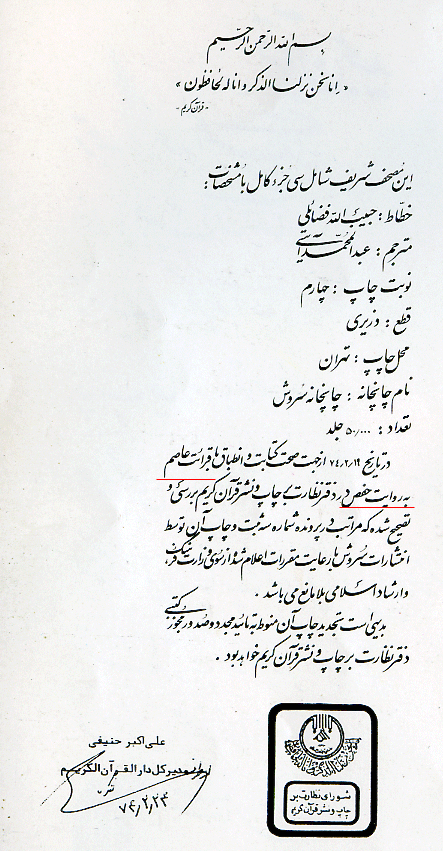 بسم الله الرحمن الرحیم
« انا نحن نزلنا الذکر و انا له لحافظون »
- قرآن کریم -
این مصحف شریف شامل سی جزء کامل با مشخصات :
خطاط : حبیب الله فضائلی
مترجم : عبدالمحمد آیتی
نوبت چاپ : چهارم
قطع : وزیری
محل چاپ : تهران
نام چاپخانه : چاپخانه سروش
تعداد : ۵۰/۰۰۰ جلد
در تاریخ ۷۴/۲/۱۹ از جهت صحت کتابت و انطباق با قرائت عاصم
به روایت حفص در دفتر نظارت بر چاپ و نشر قرآن کریم بررسی و
تصحیح شده که مراتب در پرونده شماره سه ثبت و چاپ آن توسط
انتشارات سروش با رعایت مقررات اعلام شده از سوی وزارت فرهنگ
و ارشاد اسلامی بلامانع می باشد .
بدیهی است تجدید چاپ آن منوط به تائید مجدد و صدور مجوز کتبی
دفتر نظارت بر چاپ و نشر قرآن کریم خواهد بود .
علی اکبر حنیفی
مدیر کل دار القرآن الکریم
۷۴/۲/۲۴
شورای نظارت بر
چاپ و نشر قرآن کریم